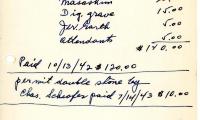 Mausoleum
Dig. grave 15.00
Jer. Earth 5.00
Attendants 5.00
$140.00
Paid 10/13/42 $120.00
permit double stone by
Chas. Schaefer paid 7/14/43 $10.00